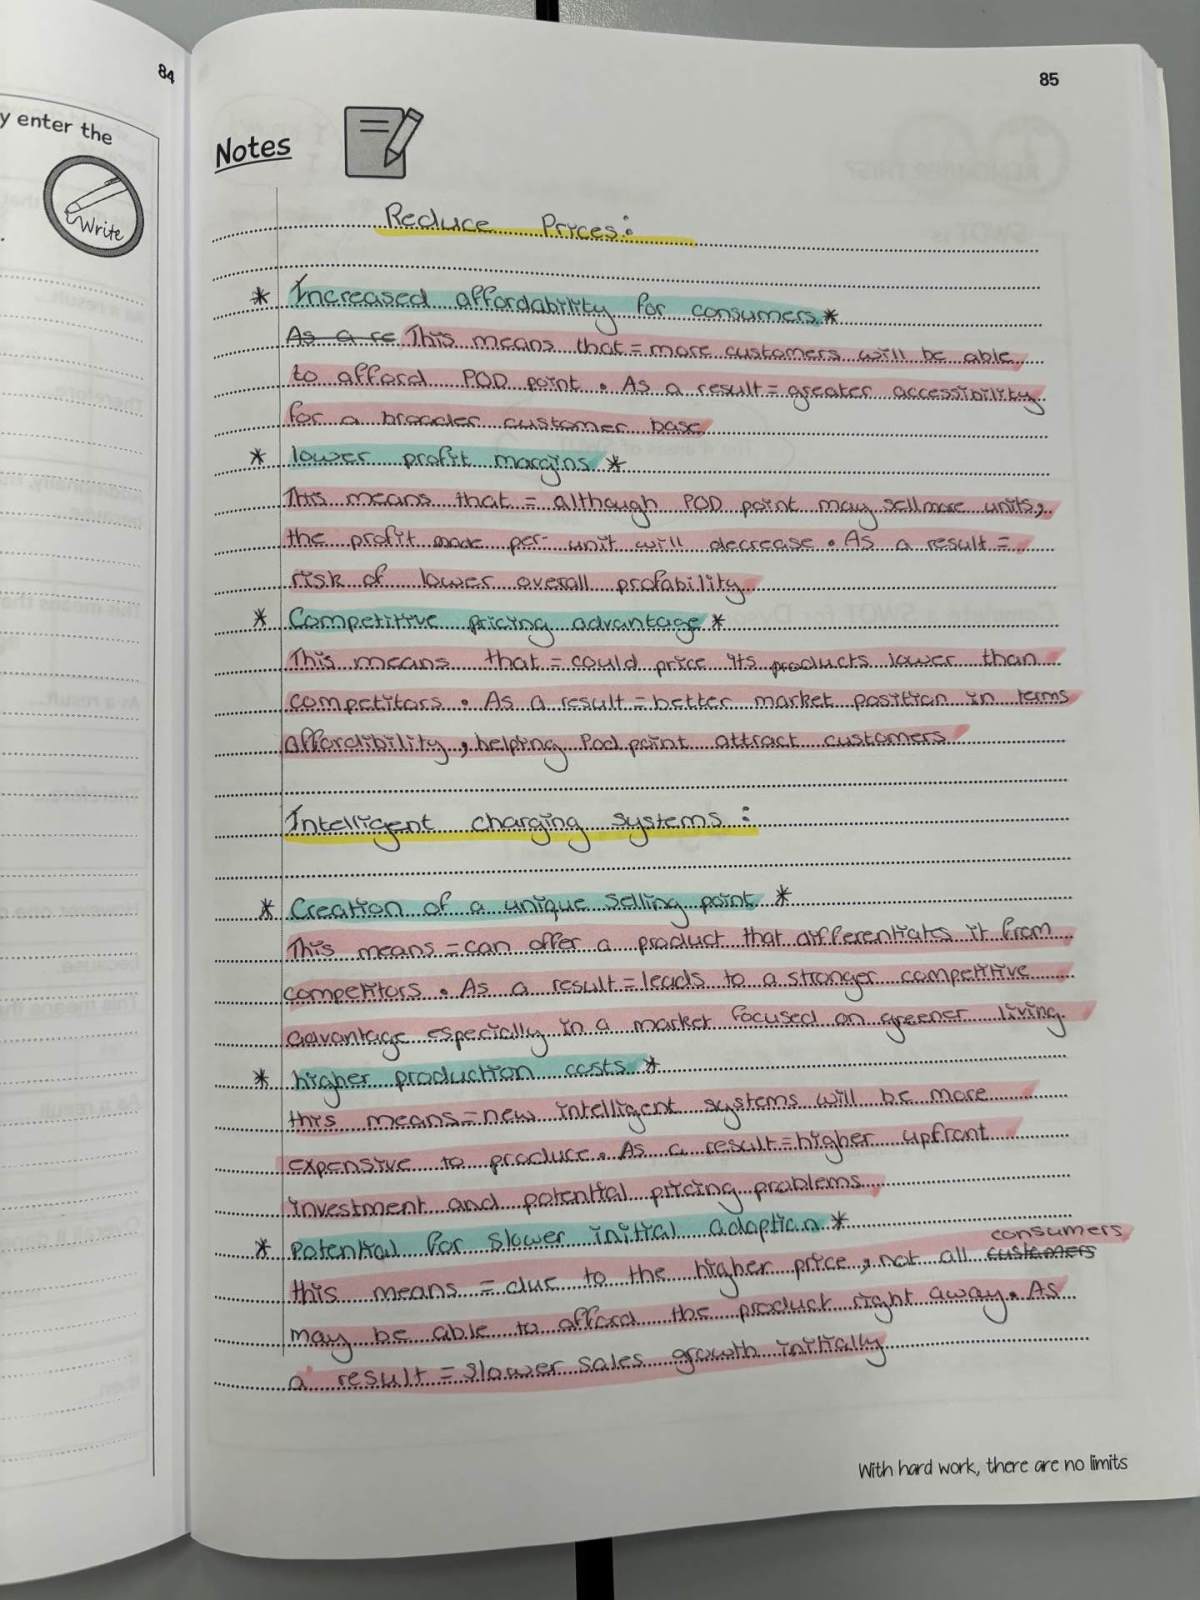 84
y enter the
Write
85
Notes
Reduce Prices:
* Increased affordability for consumers *
As a re This means that = more customers will be able
to afford POD point. As a result = greater accessibility
for a broader customer base
* lower profit margins *
This means that = although POD point may sell more units,
the profit made per unit will decrease. As a result =
risk of lower overall profability
* Competitive pricing advantage *
This means that = could price its products lower than
competitors. As a result = better market position in terms
affordibility, helping Pod point attract customers
Intelligent charging systems:
* Creation of a unique selling point *
This means = can offer a product that differentiates it from
competitors. As a result = leads to a stronger competitive
advantage especially in a market focused on greener living.
* higher production costs *
this means = new intelligent systems will be more
expensive to produce. As a result = higher upfront
investment and potential pricing problems
* potential for slower initial adoption *
consumers
this means = due to the higher price, not all customers
may be able to afford the product right away. As
a result = slower sales growth initially
With hard work, there are no limits